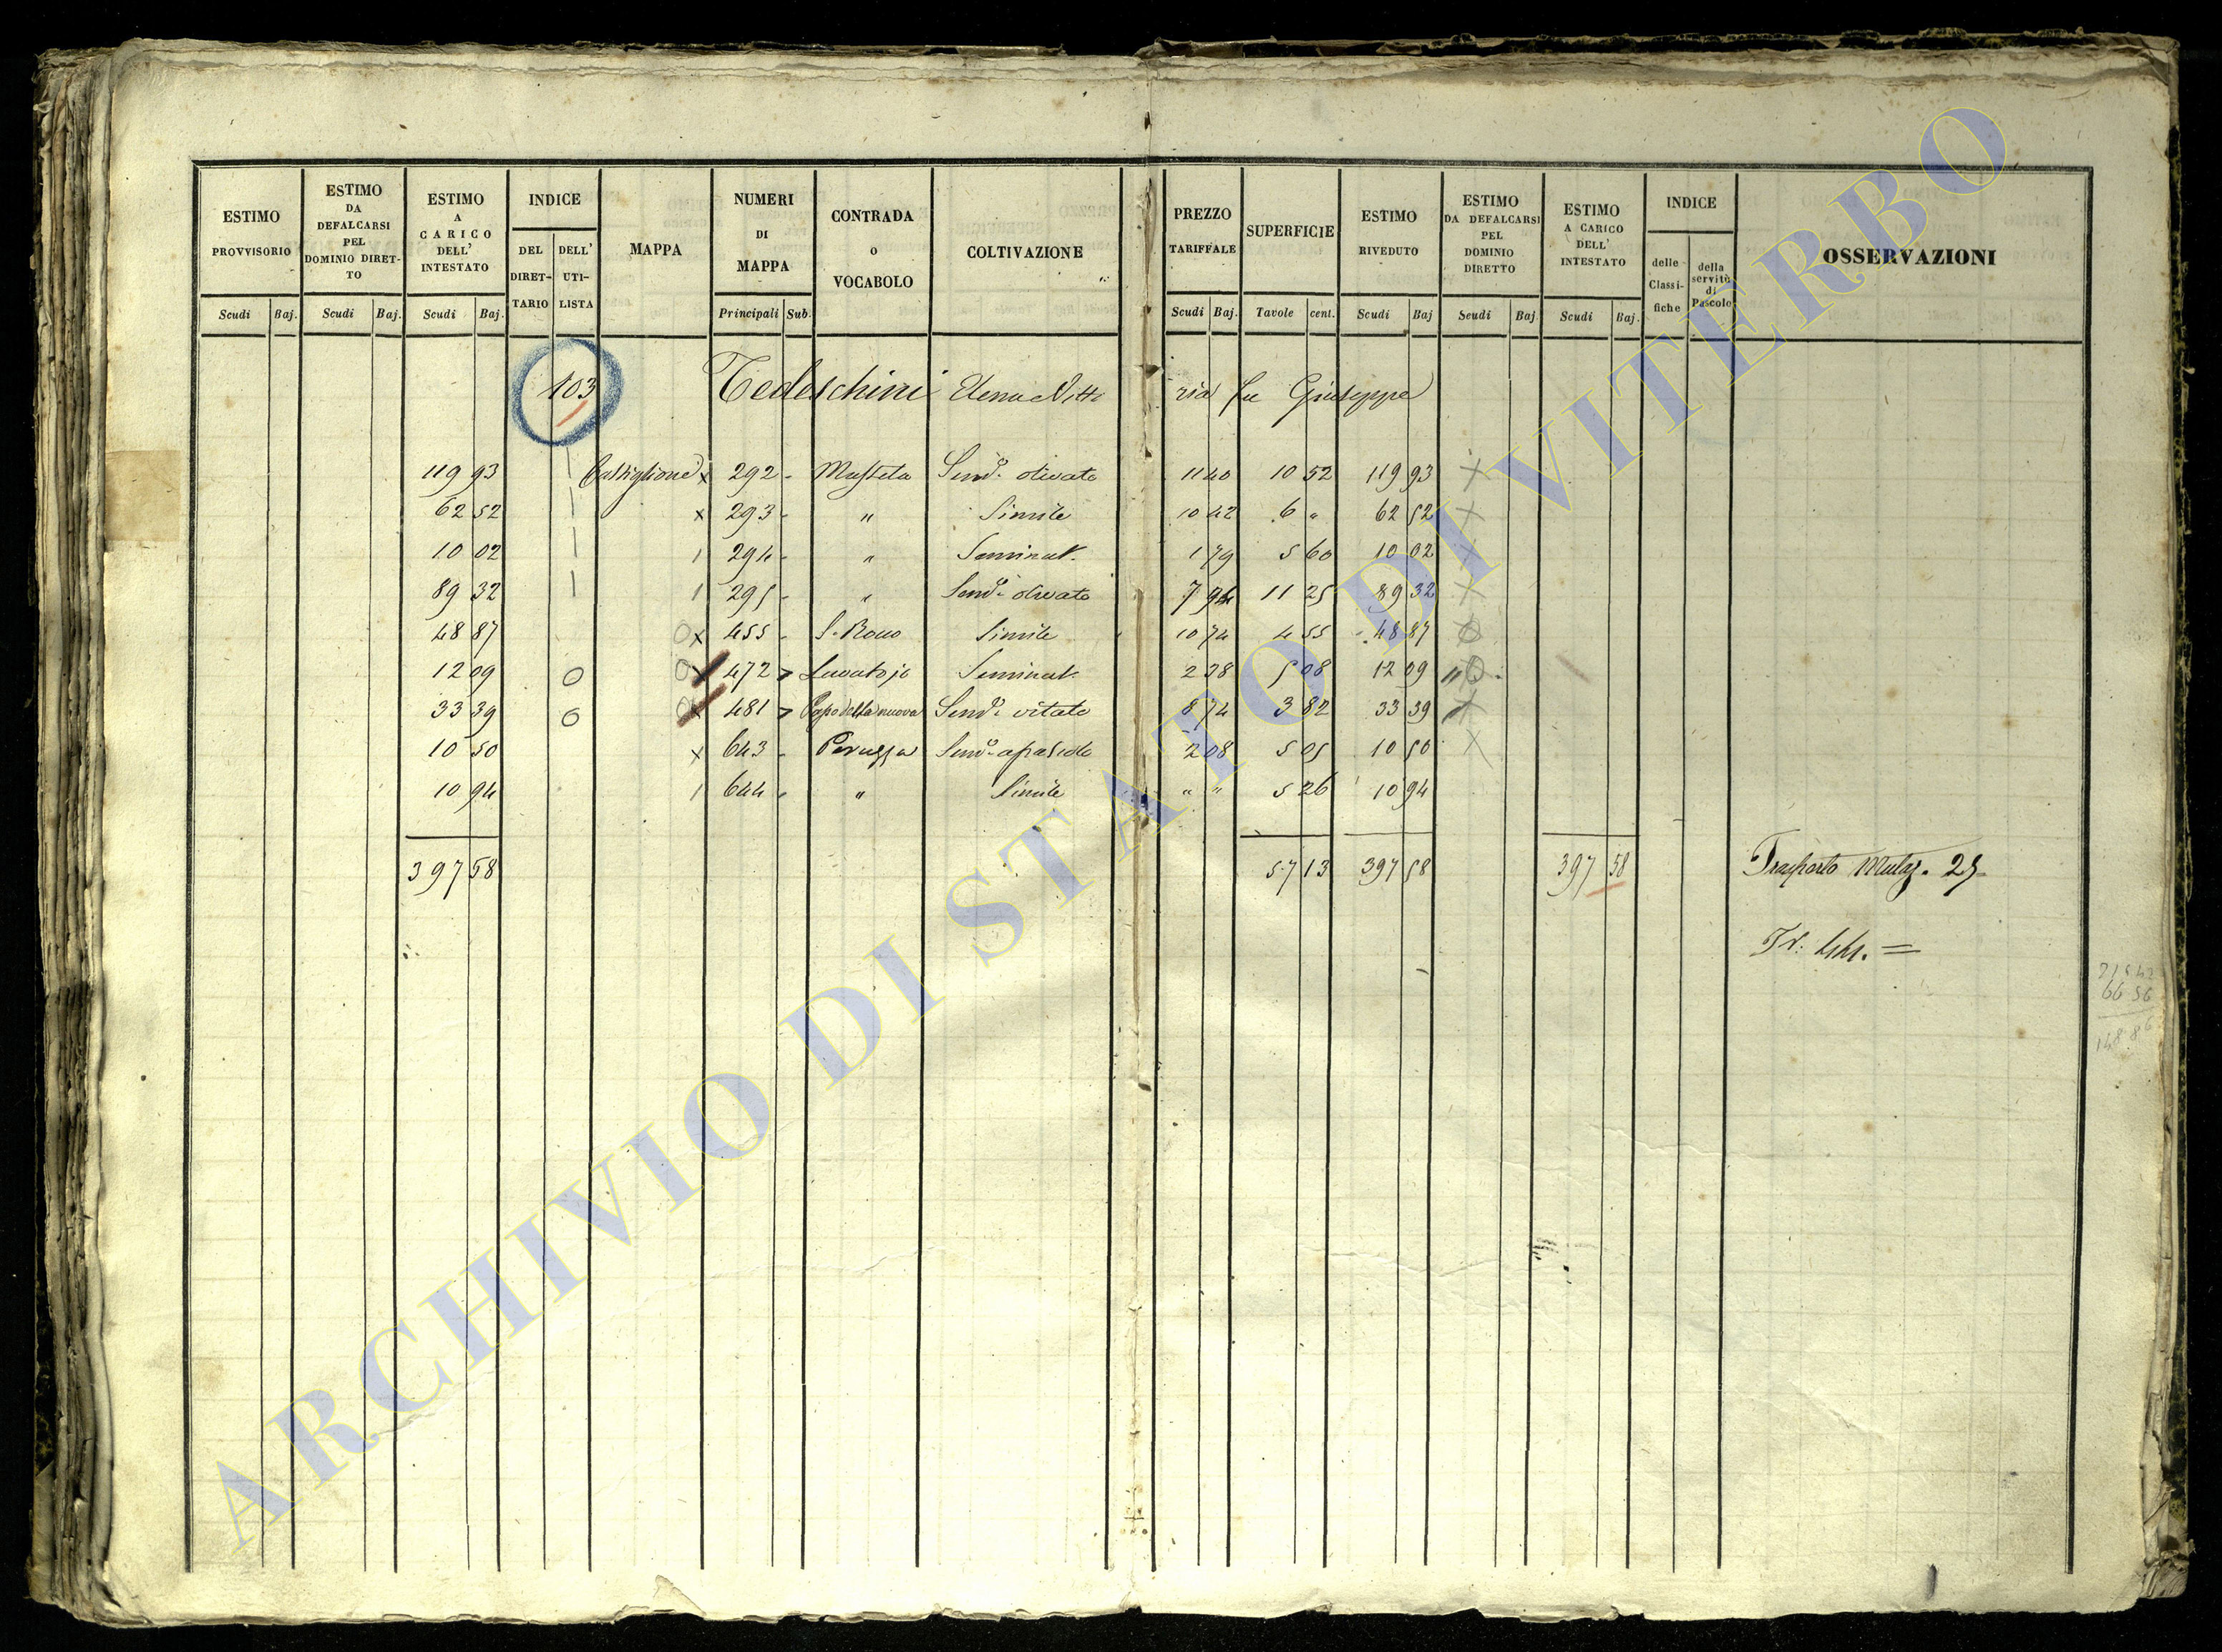 ESTIMO PROVVISORIO
ESTIMO DA DEFALCARSI PEL DOMINIO DIRET-TO
ESTIMO A CARICO DELL' INTESTATO
INDICE
DEL DIRET-TARIO
DELL' UTI-LISTA
MAPPA
NUMERI DI MAPPA
CONTRADA o VOCABOLO
COLTIVAZIONE
PREZZO TARIFFALE
SUPERFICIE
ESTIMO RIVEDUTO
ESTIMO DA DEFALCARSI PEL DOMINIO DIRETTO
ESTIMO A CARICO DELL' INTESTATO
INDICE
delle Classi-fiche
della servitù di Pascolo
OSSERVAZIONI
Scudi Baj. Scudi Baj. Scudi Baj. Principali Sub. Scudi Baj. Tavole cent. Scudi Baj Scudi Baj. Scudi Baj.
103 Tedeschini Elena e Vitto ria fu Giuseppe
119 93 Castiglione x 292 - Sem.o olivato 1140 10 52 119 93 x
62 52 x 293 - " Simile 10 42 6 " 62 52 x
10 02 1 294 - " Seminat. 1 79 5 60 10 02 x
89 32 1 295 - " Sem.o olivato 7 94 11 25 89 32 x
48 87 0x 455 - S. Rocco Simile 10 74 4 55 48 87
12 09 0 0x 472 Lavatojo Seminat. 2 38 5 08 12 09 "
33 39 0 0x 481 Capo della nuova Sem.o vitato 8 74 3 82 33 39 x
10 50 x 643 - Sem.o 2 08 5 05 10 50 x
10 94 1 644 - " Simile " " 5 26 10 94
397 58 57 13 397 58 397 58 Trasporto Mutaz. 25
Tr. 44. =
66 56
148 86
ARCHIVIO DI STATO DI VITERBO